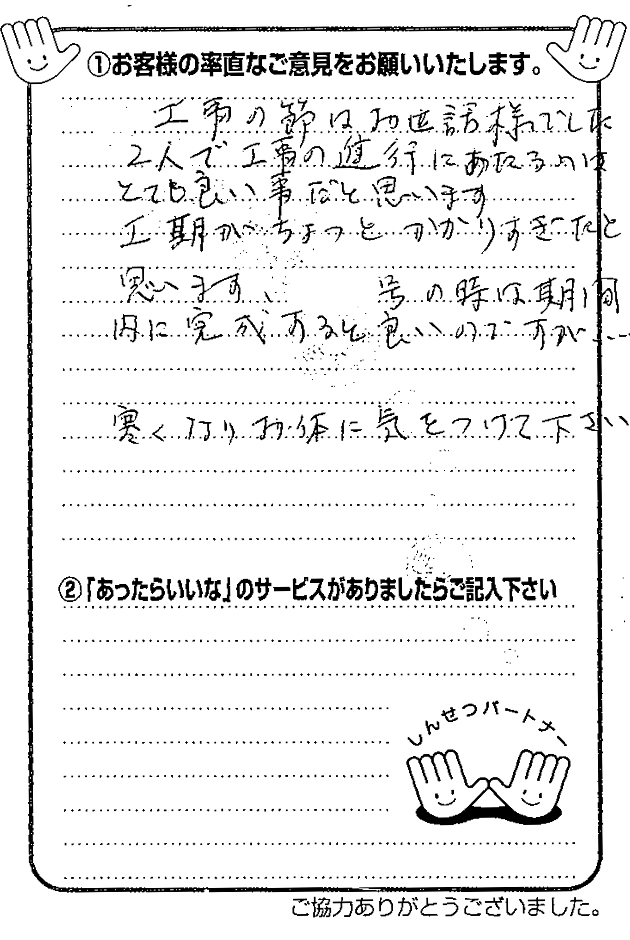 ①お客様の率直なご意見をお願いいたします。
工事の節はお世話様でした
2人で工事の進行にあたるのは
とても良い事だと思います
工期がちょっとかかりすぎたと
思います、 号の時は期間
内に完成すると良いのですが……
寒くなりお体に気をつけて下さい
②「あったらいいな」のサービスがありましたらご記入下さい
しんせつパートナー
ご協力ありがとうございました。